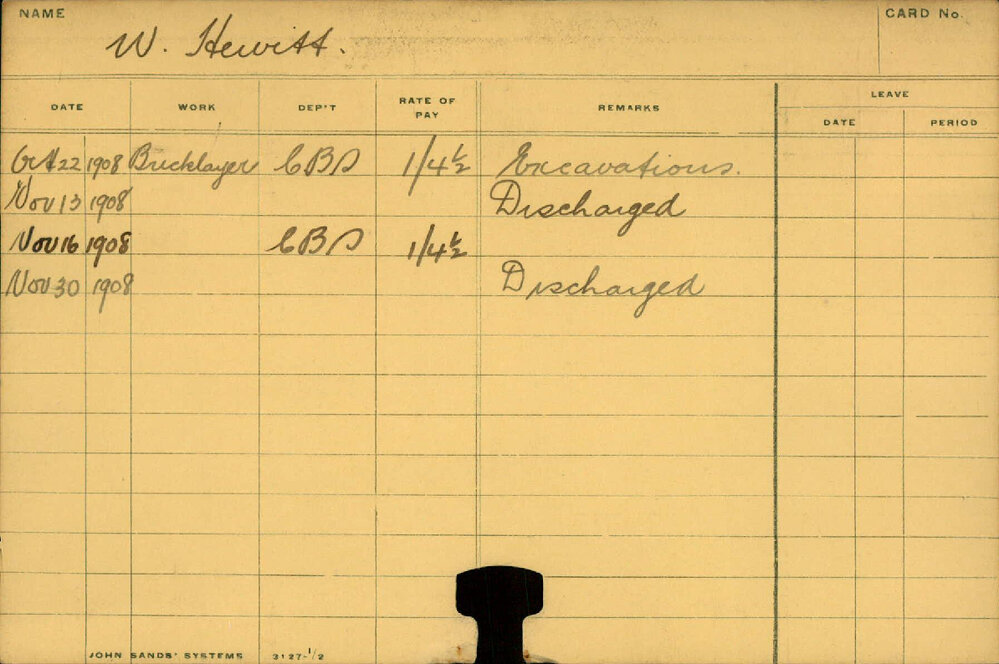 NAME
CARD No.
W. Hewitt.
DATE WORK DEP'T RATE OF PAY REMARKS LEAVE
DATE PERIOD
Oct 22 1908 Bricklayer CBS 1/4½ Excavations.
Nov 13 1908 Discharged
Nov 16 1908 CBS 1/4½
Nov 30 1908 Discharged
JOHN SANDS' SYSTEMS 3127-1/2